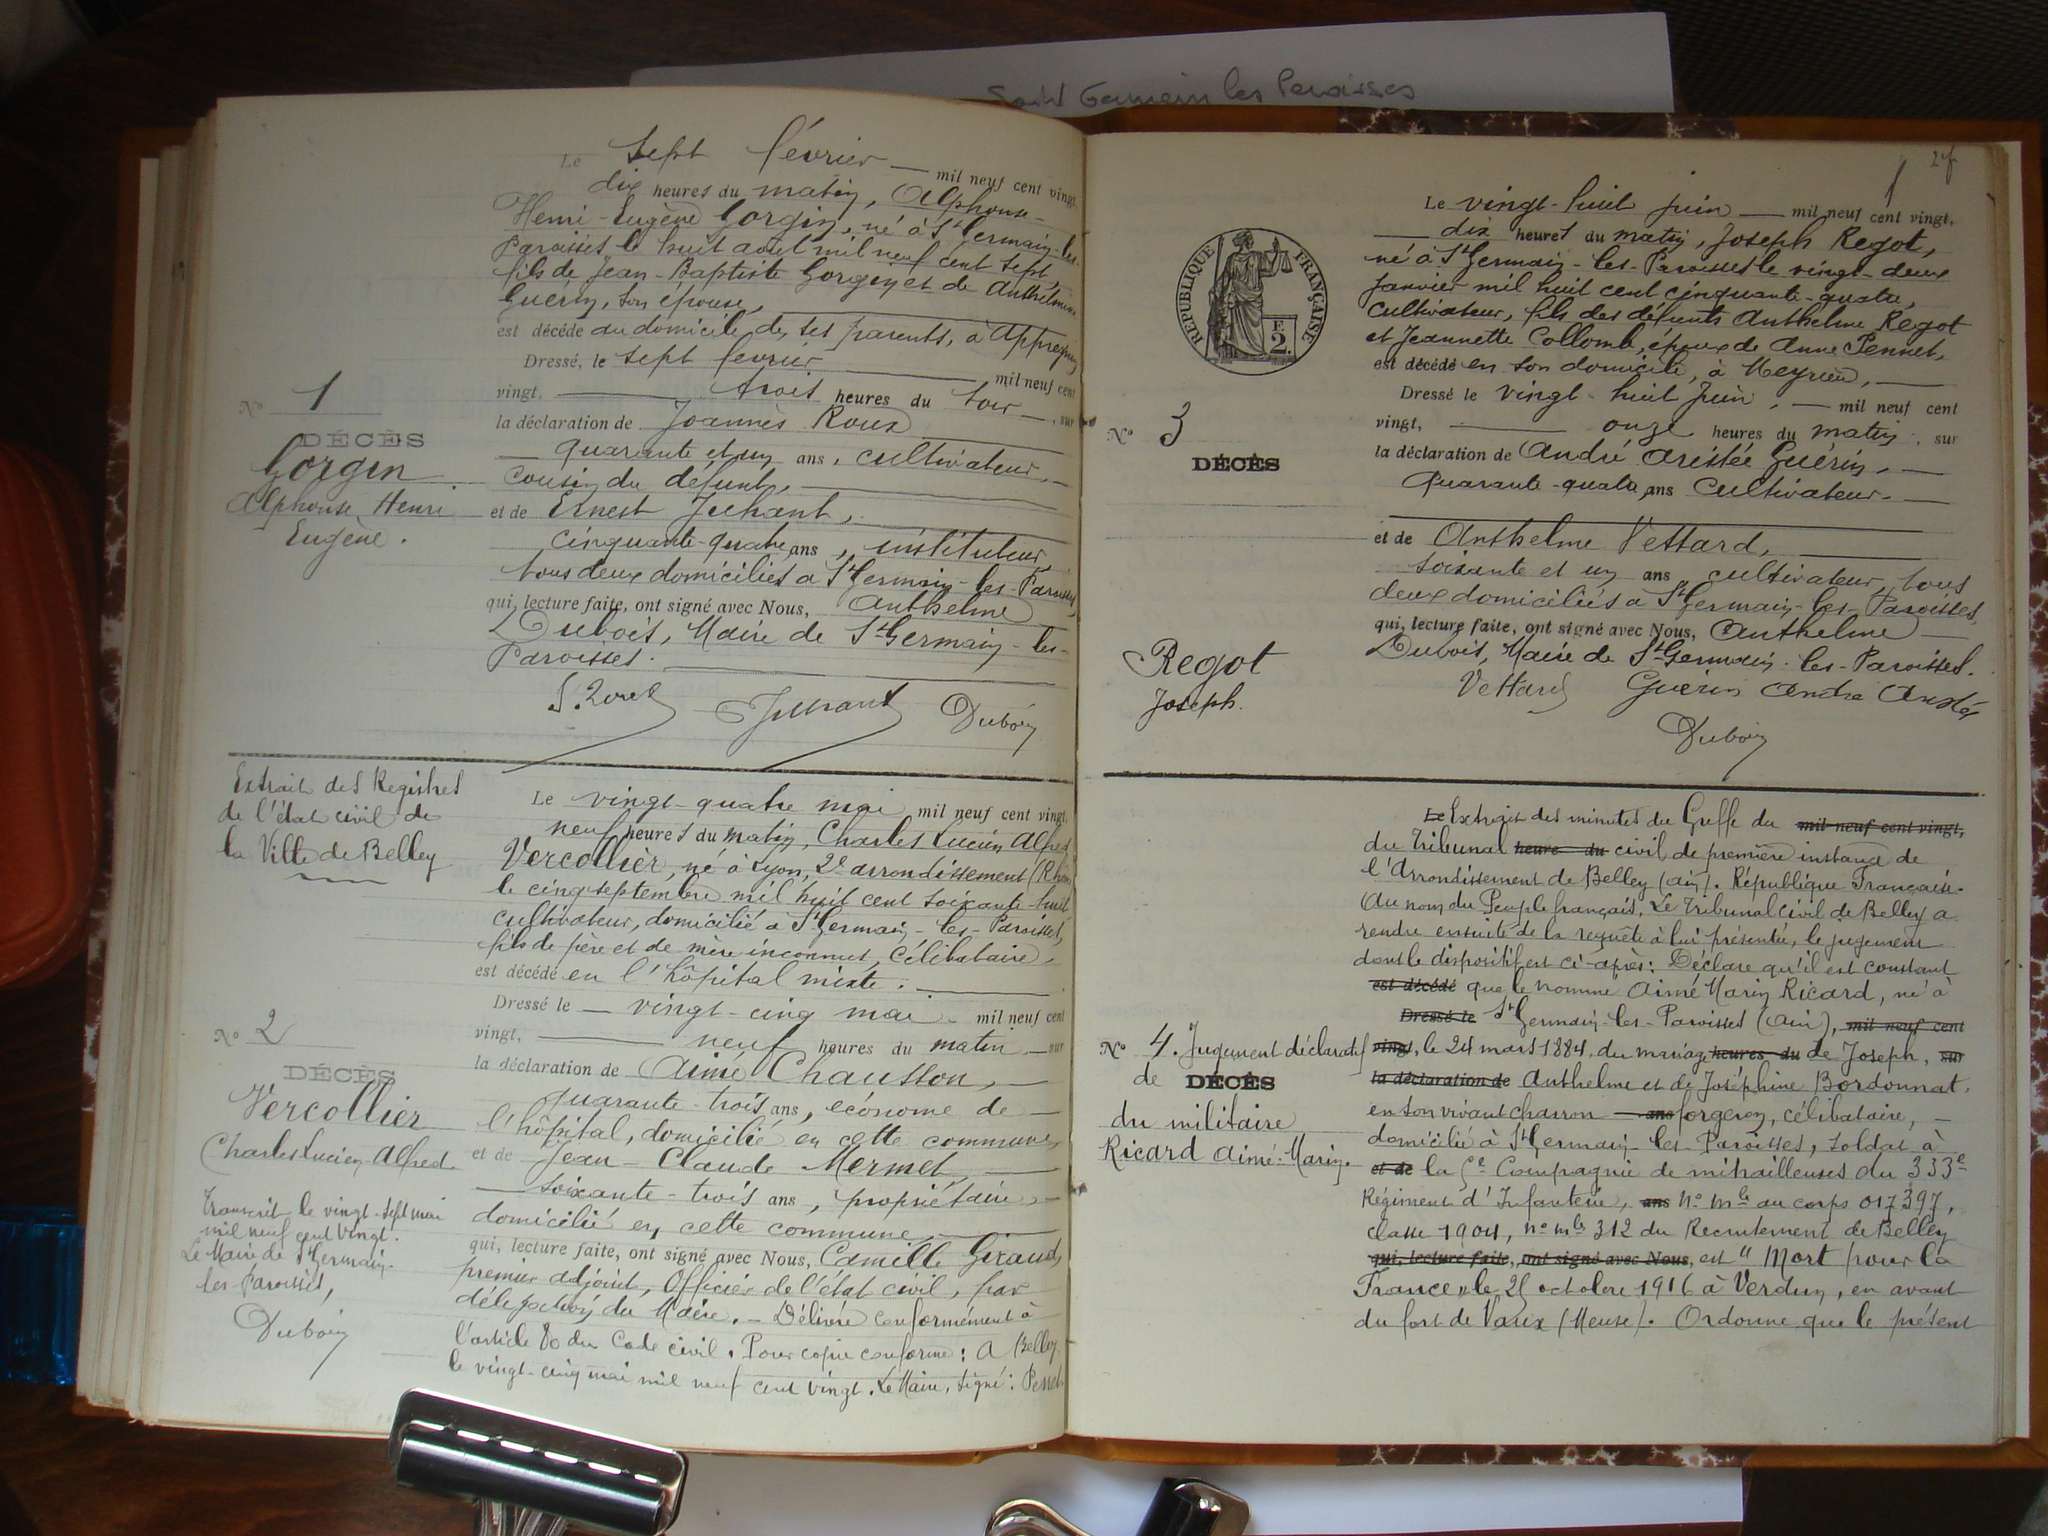 Saint Germain les Paroisses
Le sept février — mil neuf cent vingt,
dix heures du matin, Alphonse-
Henri-Eugène Gorgin, né à St Germain-les-
Paroisses le huit août mil neuf cent sept,
fils de Jean-Baptiste Gorgin et de Anthelmine
Guérin, son épouse,
est décédé au domicile de ses parents, à Appregnin,
Dressé, le sept février mil neuf cent
vingt, trois heures du soir, sur
la déclaration de Joannès Roux
quarante et un ans, cultivateur,
cousin du défunt,
et de Ernest Juhant,
cinquante-quatre ans, instituteur,
tous deux domiciliés à St Germain-les-Paroisses,
qui, lecture faite, ont signé avec Nous, Anthelme
Dubois, Maire de St Germain-les-
Paroisses.
Juhant Dubois
No 1
DÉCÈS
Gorgin
Alphonse Henri
Eugène.
Extrait des Registres
de l'état civil de
la Ville de Belley
No 2
DÉCÈS
Vercollier
Charles Lucien Alfred
Transcrit le vingt-sept mai
mil neuf cent vingt.
Le Maire de St Germain-
les-Paroisses,
Dubois
Le vingt-quatre mai mil neuf cent vingt,
neuf heures du matin, Charles Lucien Alfred
Vercollier, né à Lyon, 2e arrondissement (Rhône)
le cinq septembre mil huit cent soixante-huit
cultivateur, domicilié à St Germain-les-Paroisses,
fils de père et de mère inconnus, célibataire,
est décédé en l'hôpital mixte.
Dressé le — vingt-cinq mai — mil neuf cent
vingt, neuf heures du matin — sur
la déclaration de Aimé Chausson, —
quarante-trois ans, économe de —
l'hôpital, domicilié en cette commune,
et de Jean-Claude Mermet,
soixante-trois ans, propriétaire, —
domicilié en cette commune,
qui, lecture faite, ont signé avec Nous, Camille Giraud,
premier adjoint, Officier de l'état civil, par
délégation du Maire. — Délivré conformément à
l'article 80 du Code civil. Pour copie conforme: A Belley,
le vingt-cinq mai mil neuf cent vingt. Le Maire, signé:
RÉPUBLIQUE FRANÇAISE
F.
2.
No 3
DÉCÈS
Regot
Joseph.
Le vingt-huit juin — mil neuf cent vingt,
— dix heures du matin, Joseph Regot,
né à St Germain-les-Paroisses le vingt-deux
janvier mil huit cent cinquante-quatre,
cultivateur, fils des défunts Anthelme Regot
et Jeannette Collomb, époux de Anne Pennet,
est décédé en son domicile, à Meyrieu, —
Dressé le vingt-huit Juin, — mil neuf cent
vingt, onze heures du matin, sur
la déclaration de André Aristée Guérin, —
Quarante-quatre ans cultivateur. —
et de Anthelme Vettard,
soixante et un ans cultivateur, tous
deux domiciliés à St Germain-les-Paroisses,
qui, lecture faite, ont signé avec Nous, Anthelme —
Dubois, Maire de St Germain-les-Paroisses.
Vettard Guérin André
Dubois
No 4. Jugement déclaratif
de DÉCÈS
du militaire
Ricard Aimé-Marin.
Le Extrait des minutes du Greffe du mil neuf cent vingt,
du Tribunal heure du civil de première instance de
l'Arrondissement de Belley (Ain). République Française.
Au nom du Peuple français. Le Tribunal civil de Belley a
rendu ensuite de la requête à lui présentée, le jugement
dont le dispositif est ci-après: Déclare qu'il est constant
est décédé que le nommé Aimé Marin Ricard, né à
Dressé le St Germain-les-Paroisses (Ain), mil neuf cent
vingt, le 24 mars 1884, du mariage heures du de Joseph, sur
la déclaration de Anthelme et de Joséphine Bordonnat,
en son vivant charron — ans forgeron, célibataire, —
domicilié à St Germain-les-Paroisses, soldat à
et de la 5e Compagnie de mitrailleuses du 333e
Régiment d'Infanterie, ans no mle au corps 017397,
classe 1904, no mle 312 du Recrutement de Belley
qui, lecture faite, ont signé avec Nous, est "Mort pour la
France" le 25 octobre 1916 à Verdun, en avant
du fort de Vaux (Meuse). Ordonne que le présent